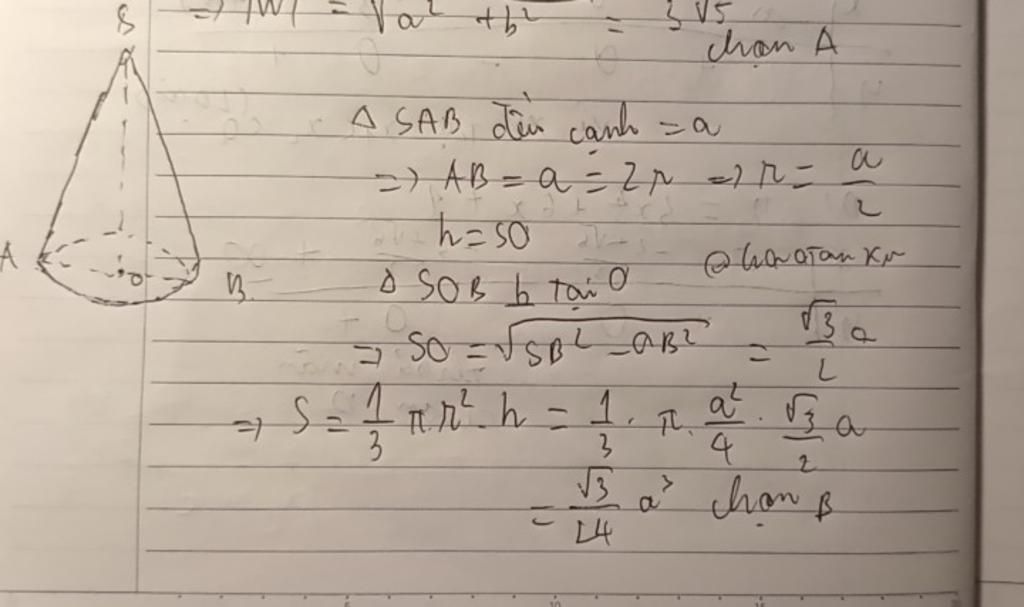 => |W| = √a² + b² = 3√5
chọn A
S
Δ SAB đều cạnh = a
=> AB = a = 2r => r = a/2
h = SO
A O B
Δ SOB h tại O
=> SO = √SB² - OB² = √3/2 a
=> S = 1/3 πr². h = 1/3 . π. a²/4 . √3/2 a
= √3/24 a³ chọn B